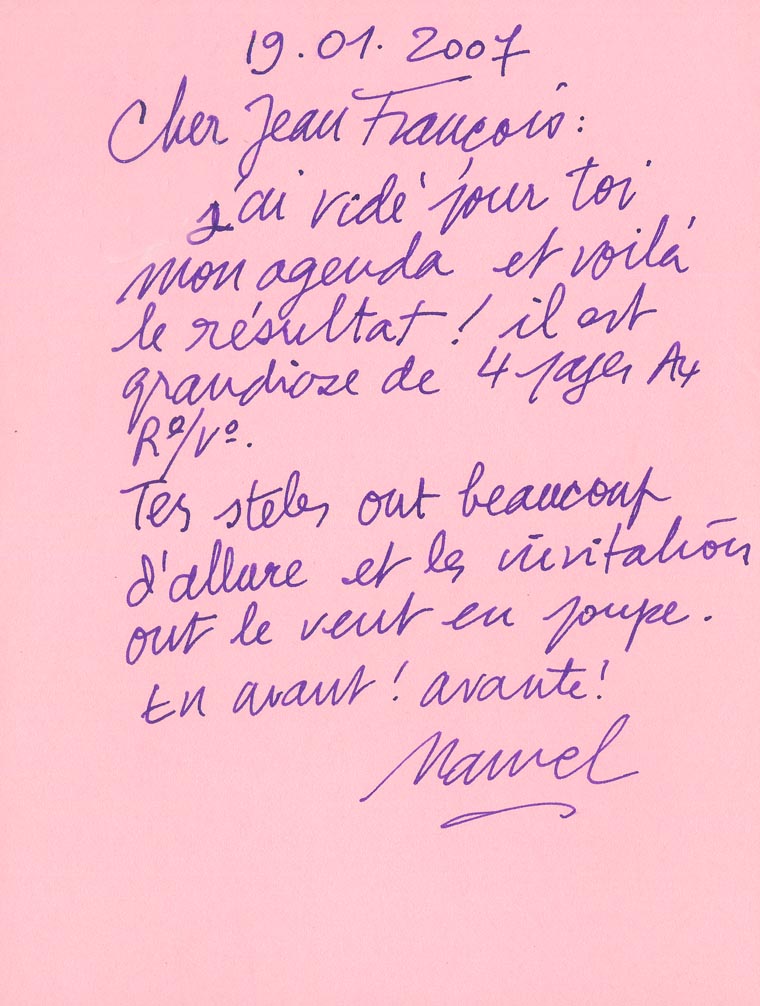 19.01.2007
Cher Jean François:
j'ai vidé pour toi
mon agenda et voilà
le résultat! il est
grandiose de 4 pages A4
Rº/Vº.
Tes steles ont beaucoup
d'allure et les invitations
ont le vent en poupe.
En avant! avante!
Manuel